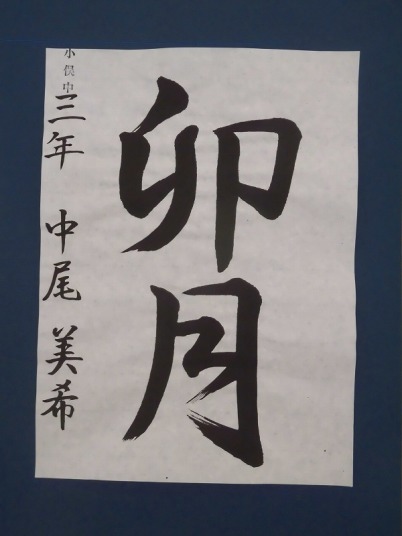 卯月
小俣中
三年 中尾 美希